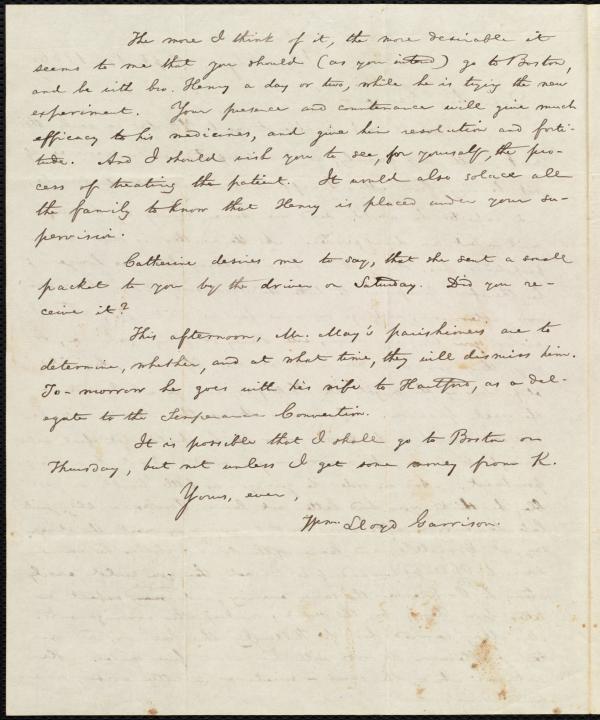 The more I think of it, the more desirable it
seems to me that you should (as you intend) go to Boston,
and be with bro. Henry a day or two, while he is trying the new
experiment. Your presence and countenance will give much
efficacy to his medicines, and give him resolution and forti-
tude. And I should wish you to see, for yourself, the pro-
cess of treating the patient. It would also solace all
the family to know that Henry is placed under your su-
pervision.
Catherine desires me to say, that she sent a small
packet to you by the driver on Saturday. Did you re-
ceive it?
This afternoon, Mr. May's parishioners are to
determine, whether, and at what time, they will dismiss him.
To-morrow he goes with his wife to Hartford, as a del-
egate to the Temperance Convention.
It is possible that I shall go to Boston on
Thursday, but not unless I get some money from K.
Yours, ever,
Wm. Lloyd Garrison.